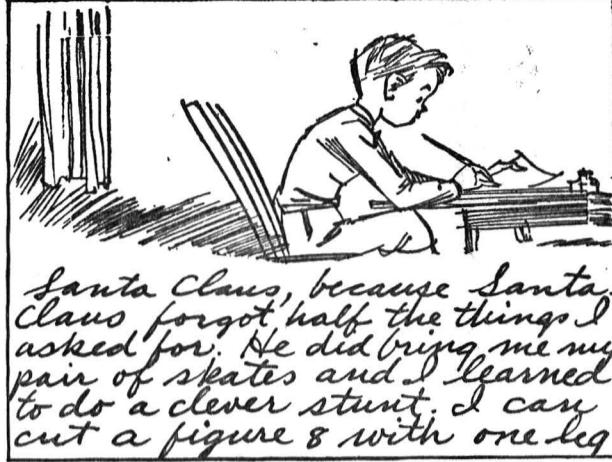 Santa Claus, because Santa
Claus forgot half the things I
asked for. He did bring me my
pair of skates and I learned
to do a clever stunt. I can
cut a figure 8 with one leg